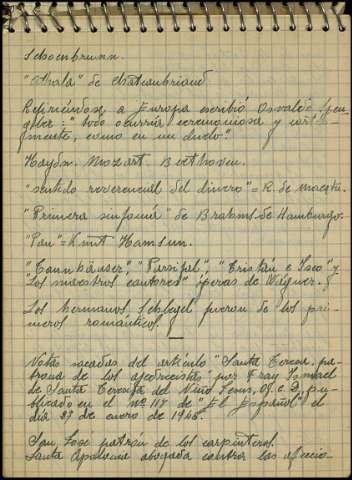 Schoenbrunn.
"Atala" de Chateaubriand
Refiriéndose a Europa escribió Osvaldo Spen-
gler: "todo ocurría ceremoniosa y cortés-
mente, como en un duelo".
Haydn. Mozart. Beethoven.
"sentido reverencial del dinero" = R. de Maeztu.
"Primera sinfonía" de Brahms de Hamburgo.
"Pan" = Knut Hamsun.
"Tannhäuser", "Parsifal", "Tristán e Iseo" y
"Los maestros cantores" óperas de Wagner.
Los hermanos Schlegel fueron de los pri-
meros románticos.
Notas sacadas del artículo "Santa Teresa, pa-
trona de los ajedrecistas" por Fray Ismael
de Santa Teresita del Niño Jesús, O. C. D. pu-
blicado en el nº 118 de "El Español" el
día 27 de enero de 1945.
San José patrón de los carpinteros.
Santa Apolonia abogada contra las afeccio-